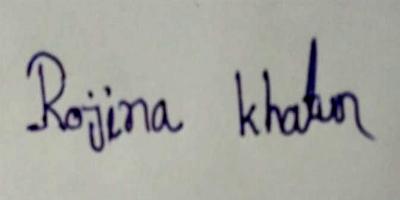 Rojina khatun